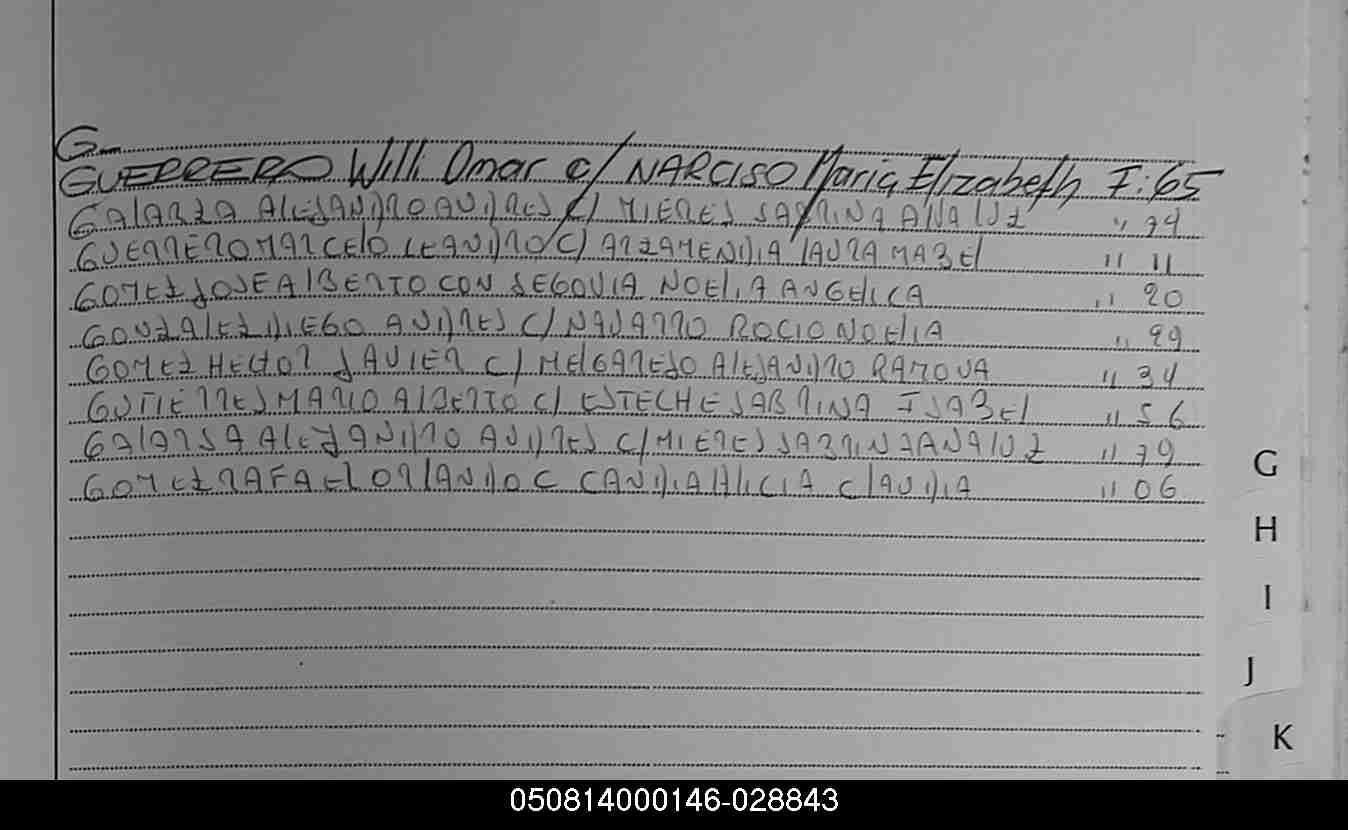 G
GUERRERO Willi Omar c/ NARCISO Maria Elizabeth F: 65
GALARZA ALEJANDRO ANDRES C/ MIERES SABRINA ANALUZ " 74
GUERRERO MARCELO LEANDRO C/ ARZAMENDIA LAURA MABEL " 11
GOMEZ JOSE ALBERTO CON SEGOVIA NOELIA ANGELICA " 20
GONZALEZ DIEGO ANDRES C/ NAVARRO ROCIO NOELIA " 99
GOMEZ HECTOR JAVIER C/ MELGAREJO ALEJANDRO RAMONA " 34
GUTIERRES MARIO ALBERTO C/ ESTECHE SABRINA ISABEL " 56
GALARSA ALEJANDRO ANDRES C/ MIERES SABRINA ANALUZ " 79
GOMEZ RAFAEL ORLANDO C CANDIA ALICIA CLAUDIA " 06
G
H
I
J
K
050814000146-028843